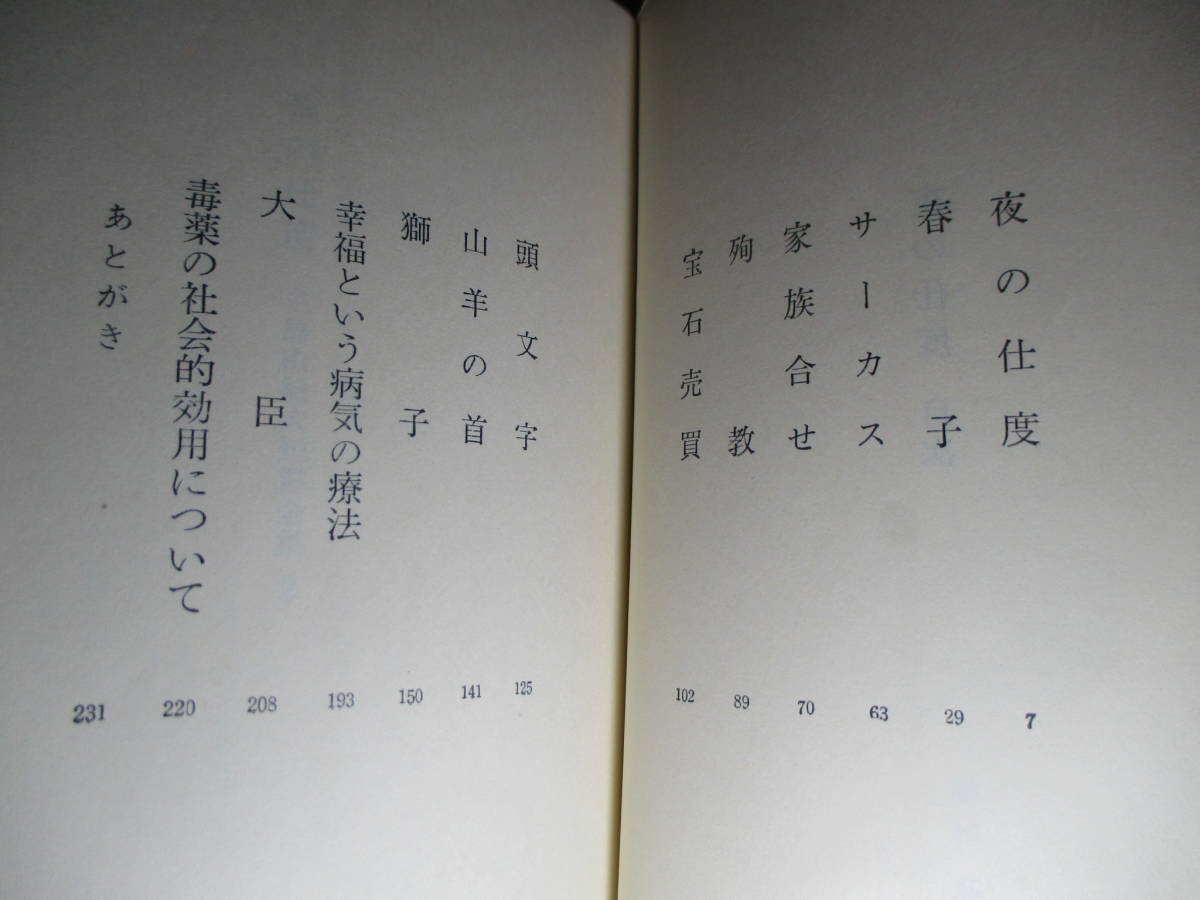 夜の仕度 7
春子 29
サーカス 63
家族合せ 70
殉教 89
宝石売買 102
頭文字 125
山羊の首 141
獅子 150
幸福という病気の療法 193
大臣 208
毒薬の社会的効用について 220
あとがき 231